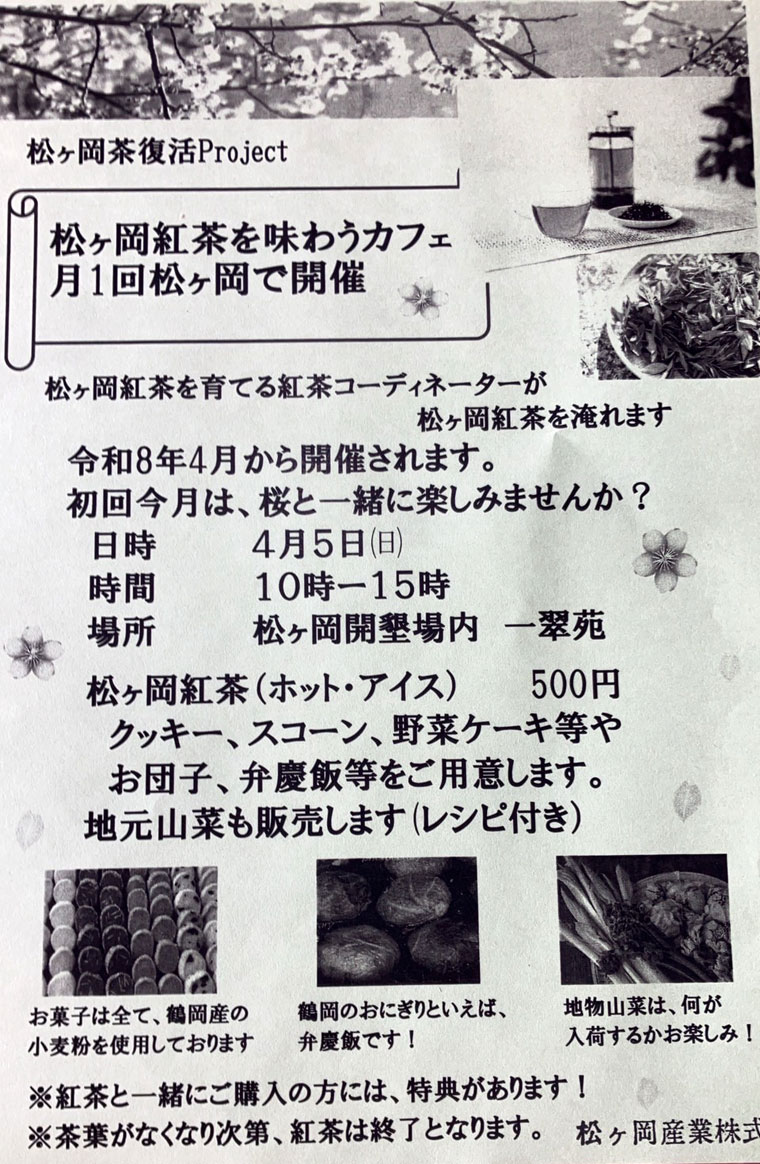 松ヶ岡茶復活Project
松ヶ岡紅茶を味わうカフェ
月1回松ヶ岡で開催
松ヶ岡紅茶を育てる紅茶コーディネーターが
松ヶ岡紅茶を淹れます
令和8年4月から開催されます。
初回今月は、桜と一緒に楽しみませんか？
日時 4月5日㈰
時間 10時ー15時
場所 松ヶ岡開墾場内 一翠苑
松ヶ岡紅茶（ホット・アイス） 500円
クッキー、スコーン、野菜ケーキ等や
お団子、弁慶飯等をご用意します。
地元山菜も販売します（レシピ付き）
お菓子は全て、鶴岡産の
小麦粉を使用しております
鶴岡のおにぎりといえば、
弁慶飯です！
地物山菜は、何が
入荷するかお楽しみ！
※紅茶と一緒にご購入の方には、特典があります！
※茶葉がなくなり次第、紅茶は終了となります。 松ヶ岡産業株式